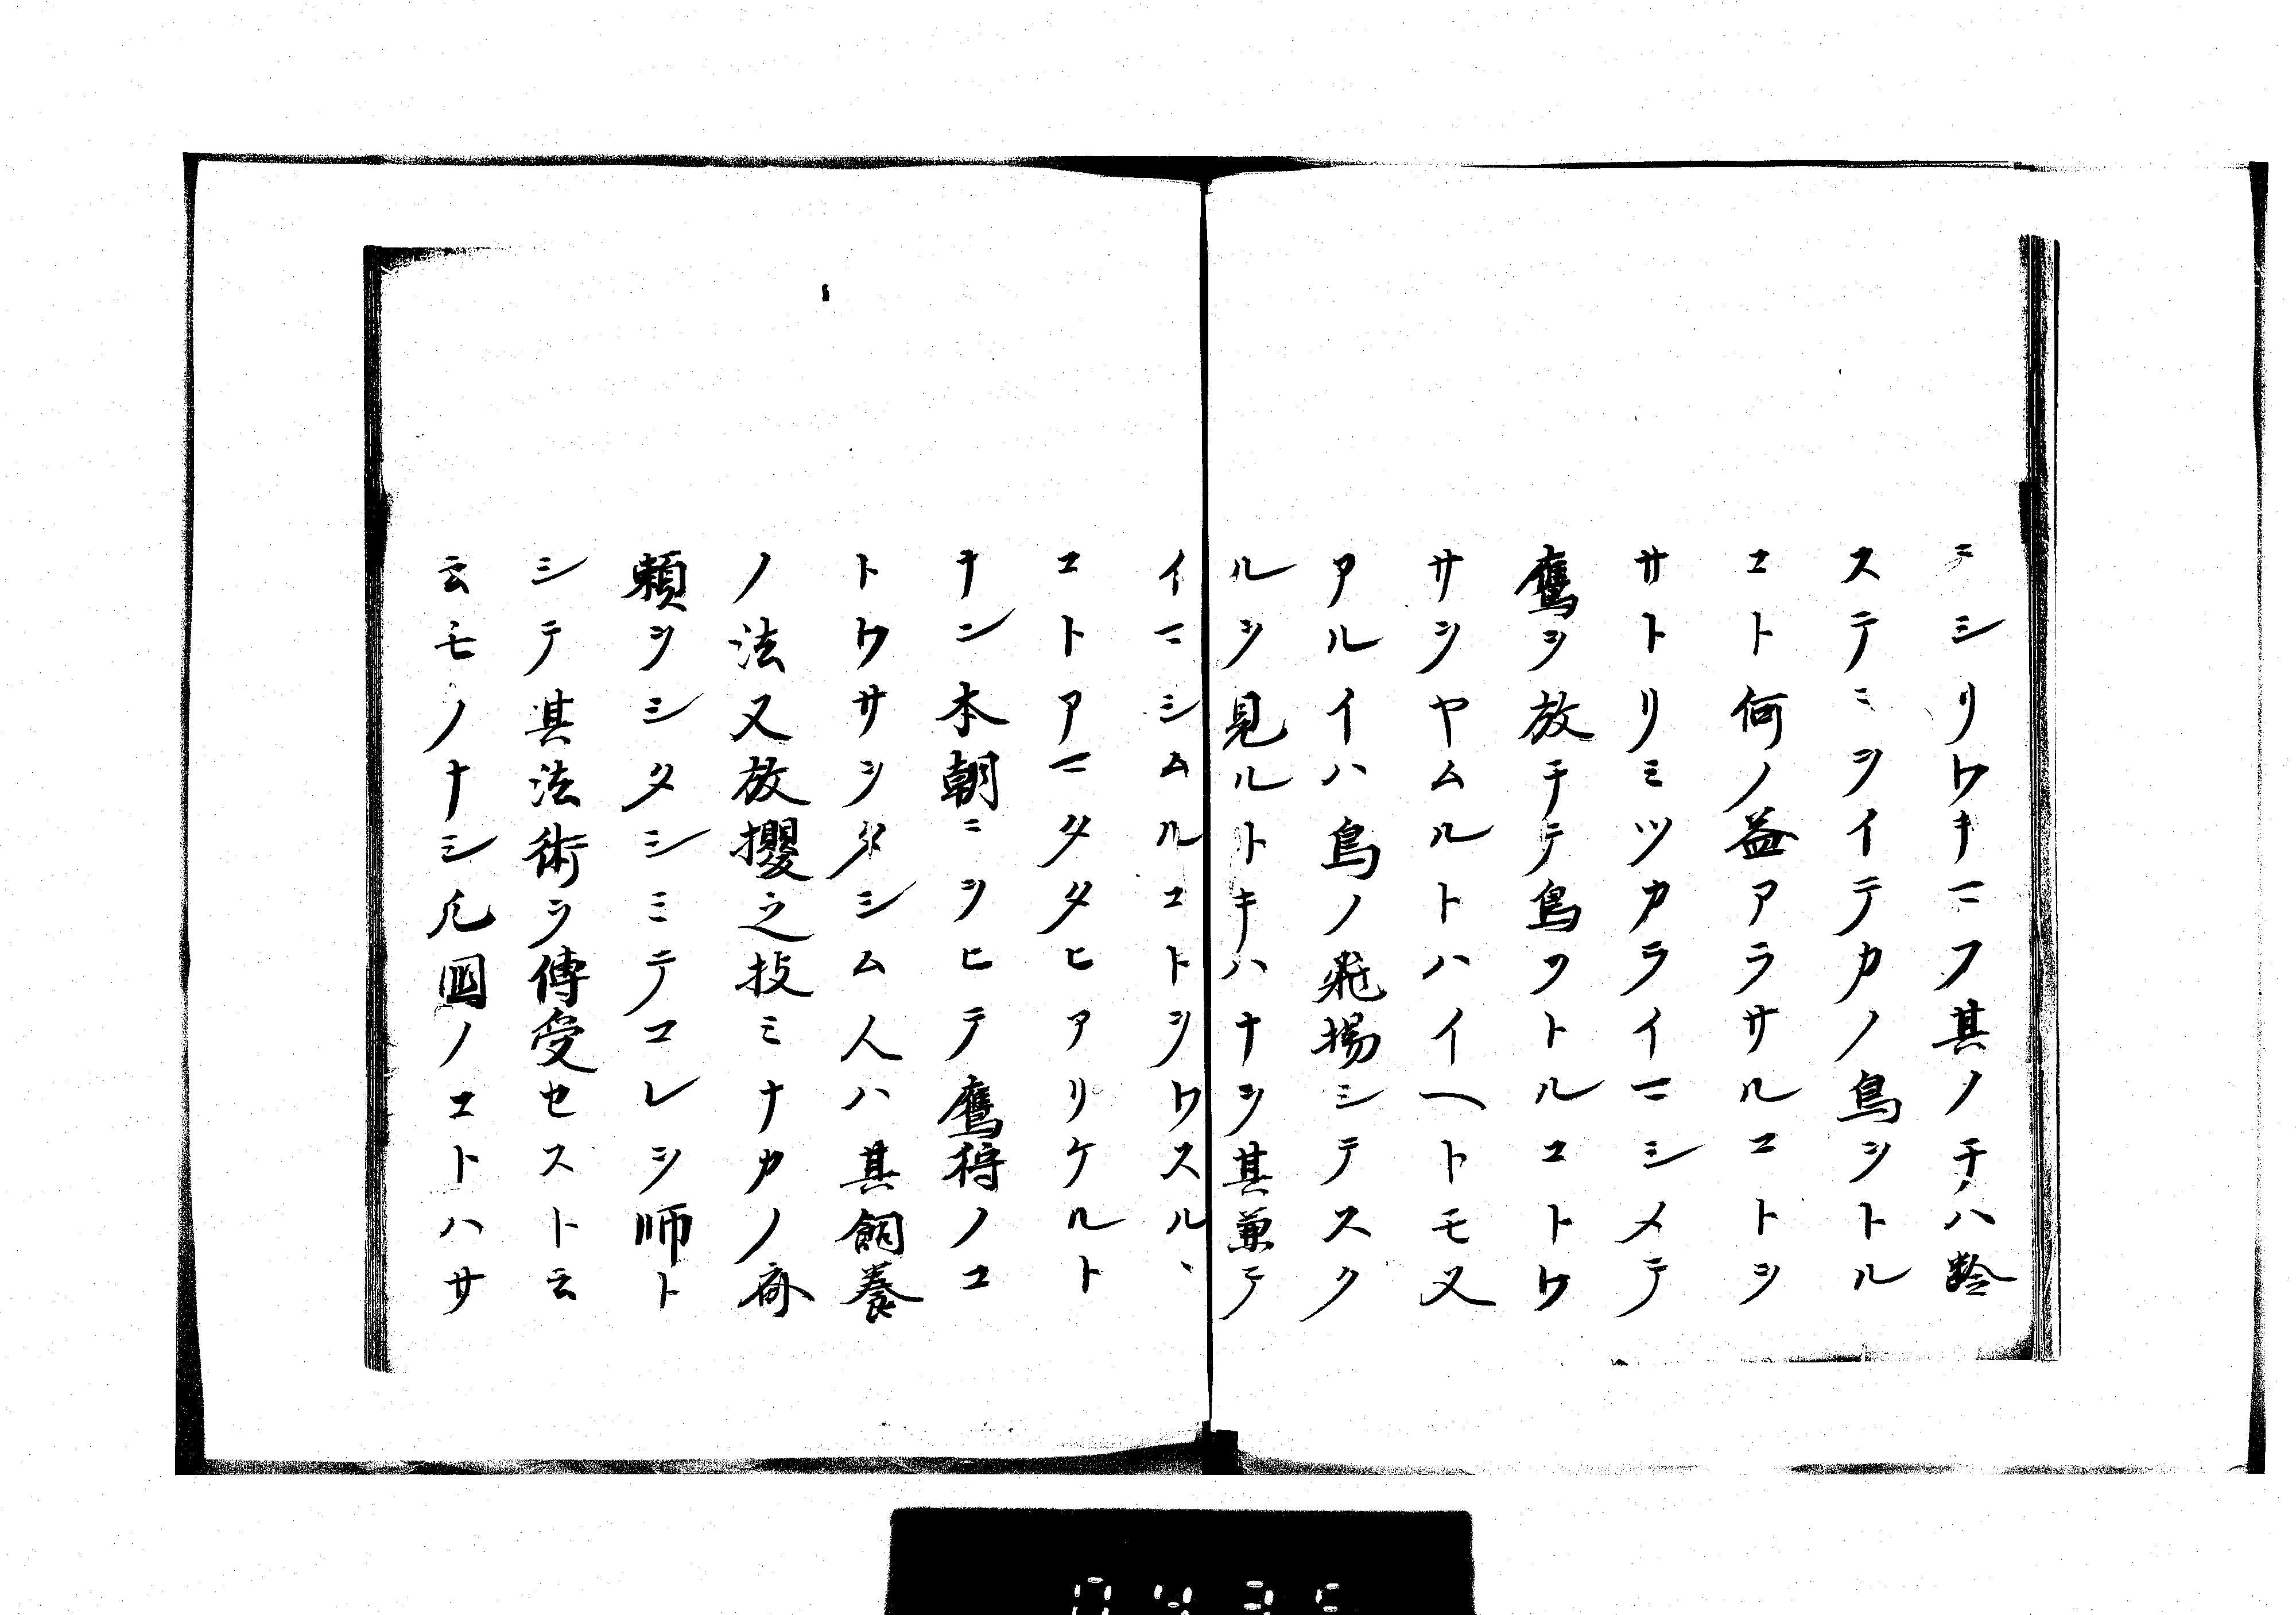 テシリワキマフ其ノチハ齢
ステニヲイテカノ鳥ヲトル
コト何ノ益アラサルコトヲ
サトリミツカライマシメテ
鷹ヲ放チテ鳥ヲトルコトワ
サヲヤムルトハイヘトモ又
アルイハ鳥ノ飛揚シテスク
ルヲ見ルトキハナヲ其兼テ
イマシムルコトヲワスルヽ
コトアマタタヒアリケルト
ナン本朝ニヲヒテ鷹狩ノコ
トワサヲタシム人ハ其飼養
ノ法又放攫之技ミナカノ斎
頼ヲシタシミテコレヲ師ト
シテ其法術ヲ傳受セスト云
云モノナシ凡圖ノコトハサ